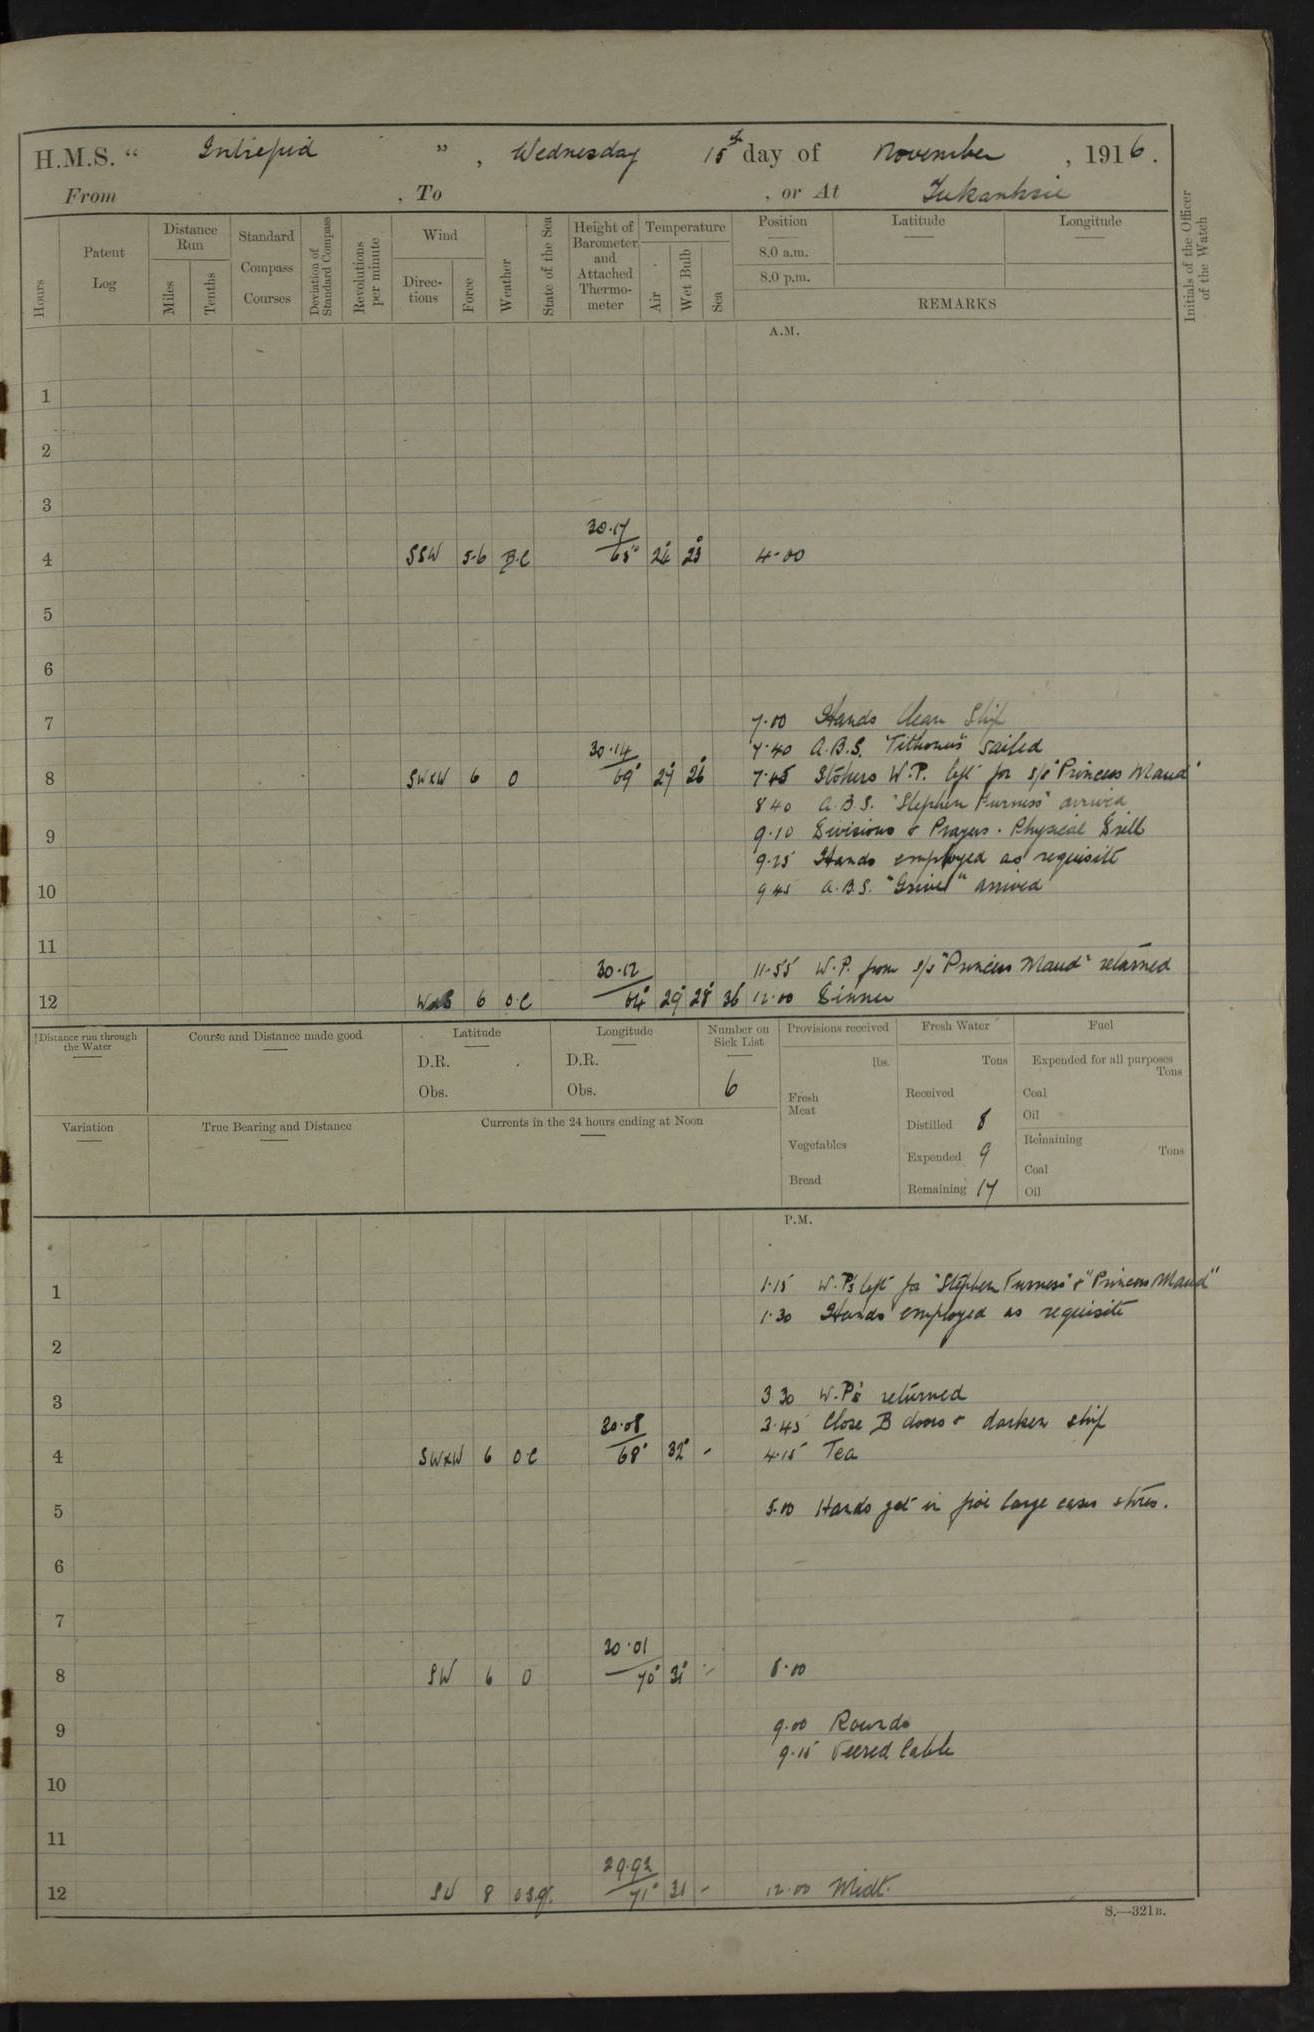 H.M.S. " Intrepid ", Wednesday 15th day of November, 1916.
From , To , or At Iukanhsie
Hours
Patent Log
Distance Run
Miles
Tenths
Standard Compass Courses
Deviation of Standard Compass
Revolutions per minute
Wind
Directions
Force
Weather
State of the Sea
Height of Barometer and Attached Thermometer
Temperature
Air
Wet Bulb
Sea
Position
8.0 a.m.
8.0 p.m.
Latitude
Longitude
REMARKS
Initials of the Officer of the Watch
A.M.
1
2
3
30.17
4 SSW 5-6 B.C 65° 24° 23° 4.00
5
6
7 7.00 Hands clean Ship
30.14 7.40 A.B.S. "Tithonus" sailed
8 SWxW 6 O 69° 27° 26° 7.45 Stokers W.P. left for s/s "Princess Maud"
8 40 A.B.S. "Stephen Furness" arrived
9 9.10 Divisions & Prayers. Physical Drill
9.25 Hands employed as requisite
10 9 45 A.B.S. "Grive" arrived
11
30.12 11.55 W.P. from s/s "Princess Maud" returned
12 WxS 6 O.C 64° 29° 28° 36° 12.00 Dinner
Distance run through the Water
Course and Distance made good
Latitude
D.R.
Obs.
Longitude
D.R.
Obs.
Number on Sick List
6
Provisions received
lbs.
Fresh Meat
Vegetables
Bread
Fresh Water
Tons
Received
Distilled 8
Expended 9
Remaining 17
Fuel
Expended for all purposes
Tons
Coal
Oil
Remaining
Tons
Coal
Oil
Variation
True Bearing and Distance
Currents in the 24 hours ending at Noon
P.M.
1 1.15 W.P's left for "Stephen Furness" & "Princess Maud"
1.30 Hands employed as requisite
2
3 3 30 W.P's returned
30.08 3.45 Close B doors & darken ship
4 SWxW 6 O.C 68° 32° - 4.15 Tea
5 5.00 Hands get in five large cases stores.
6
7
30.01
8 SW 6 O 70° 31° - 8.00
9 9.00 Rounds
9.15 Veered Cable
10
11
29.92
12 SW 8 71° 31 - 12.00 Midt.
S.—321B.